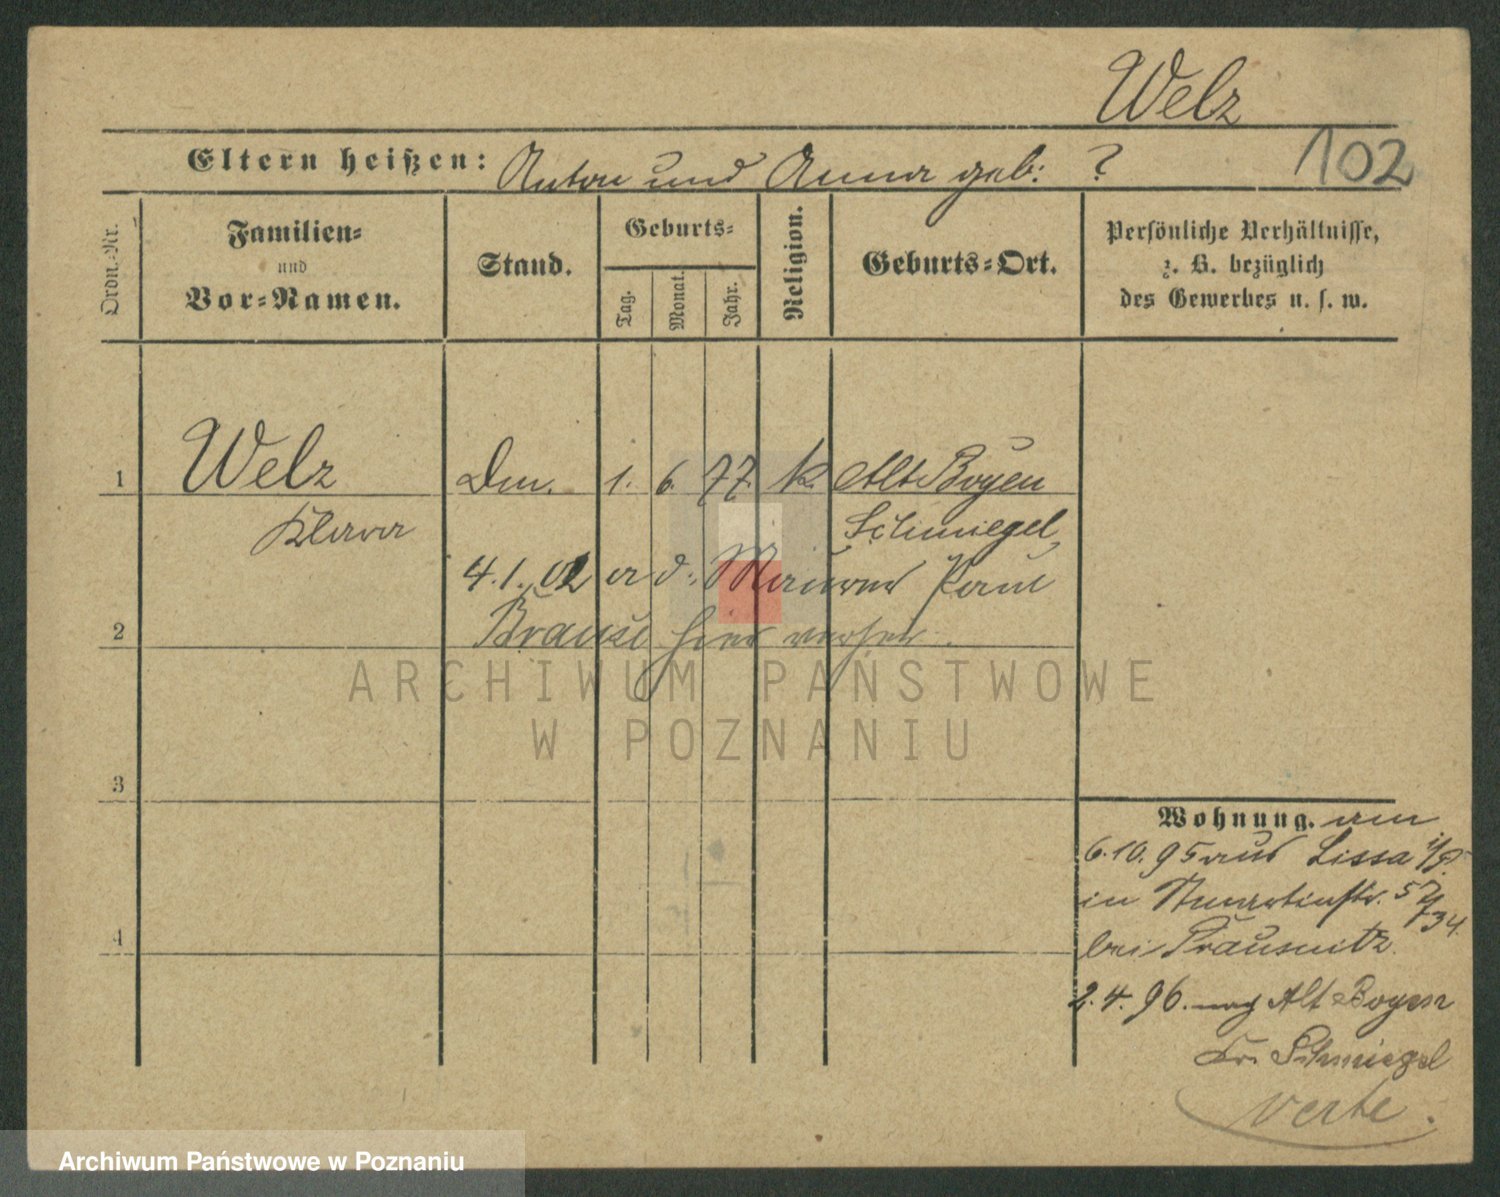 Welz
102
Eltern heißen: Anton und Anna geb: ?
Ordn.-Nr.
Familien-
und
Vor-Namen.
Stand.
Geburts-
Tag.
Monat.
Jahr.
Religion.
Geburts-Ort.
Persönliche Verhältnisse,
z. B. bezüglich
des Gewerbes u. s. w.
1 Welz Dm. 1. 6. 77. k. Alt Boyen
Klara Schmiegel
4.1.02 a d. Maurer Paul
2 Brause hier verh
3
4
Wohnung. am
6.10.95 aus Lissa i/P.
in St martinstr. 57
734.
bei Prausnitz
2.4.96. nach Alt Boyen
Kr. Schmiegel
verte.
ARCHIWUM PAŃSTWOWE
W POZNANIU
Archiwum Państwowe w Poznaniu